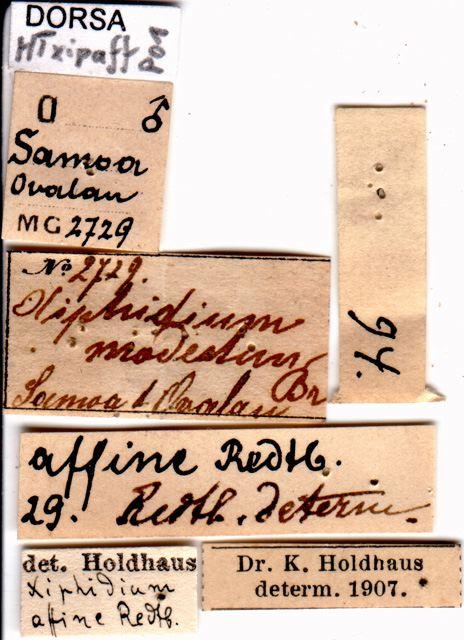 DORSA
♂
Samoa
Ovalau
MG 2729
No. 2729.
Xiphidium
modestum
Br
Samoa & Ovalau
94.
affine Redtb.
29. Redtb. determ.
det. Holdhaus
Xiphidium
affine Redtb.
Dr. K. Holdhaus
determ. 1907.